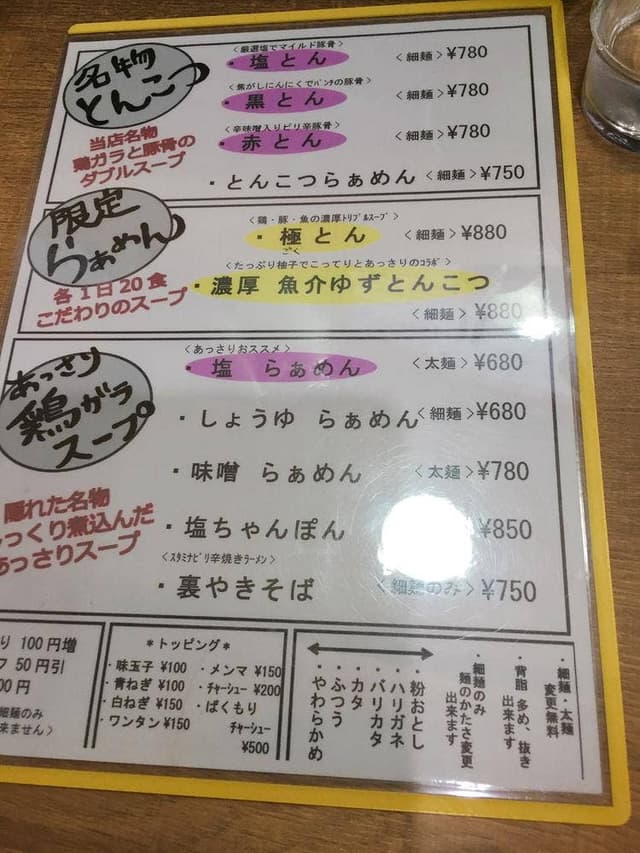 名物
とんこつ
当店名物
鶏ガラと豚骨の
ダブルスープ
〈厳選塩でマイルド豚骨〉
・塩とん 〈細麺〉¥780
〈焦がしにんにくでパンチの豚骨〉
・黒とん 〈細麺〉¥780
〈辛味噌入りピリ辛豚骨〉
・赤とん 〈細麺〉¥780
・とんこつらぁめん 〈細麺〉¥750
限定
らぁめん
各1日20食
こだわりのスープ
〈鶏・豚・魚の濃厚トリプルスープ〉
・極とん 〈細麺〉¥880
ごく
〈たっぷり柚子でこってりとあっさりのコラボ〉
・濃厚 魚介ゆずとんこつ
〈細麺〉¥880
あっさり
鶏ガラ
スープ
隠れた名物
っくり煮込んだ
あっさりスープ
〈あっさりおススメ〉
・塩 らぁめん 〈太麺〉¥680
・しょうゆ らぁめん 〈細麺〉¥680
・味噌 らぁめん 〈太麺〉¥780
・塩ちゃんぽん ¥850
〈スタミナピリ辛焼きラーメン〉
・裏やきそば 〈細麺のみ〉¥750
り 100円増
フ 50円引
00円
細麺のみ
来ません〉
*トッピング*
・味玉子 ¥100
・青ねぎ ¥100
・白ねぎ ¥150
・ワンタン ¥150
・メンマ ¥150
・チャーシュー ¥200
・ばくもり
チャーシュー
¥500
・細麺・太麺
変更無料
・背脂 多め、抜き
出来ます
・細麺のみ
麺のかたさ変更
出来ます
・粉おとし
・ハリガネ
・バリカタ
・カタ
・ふつう
・やわらかめ